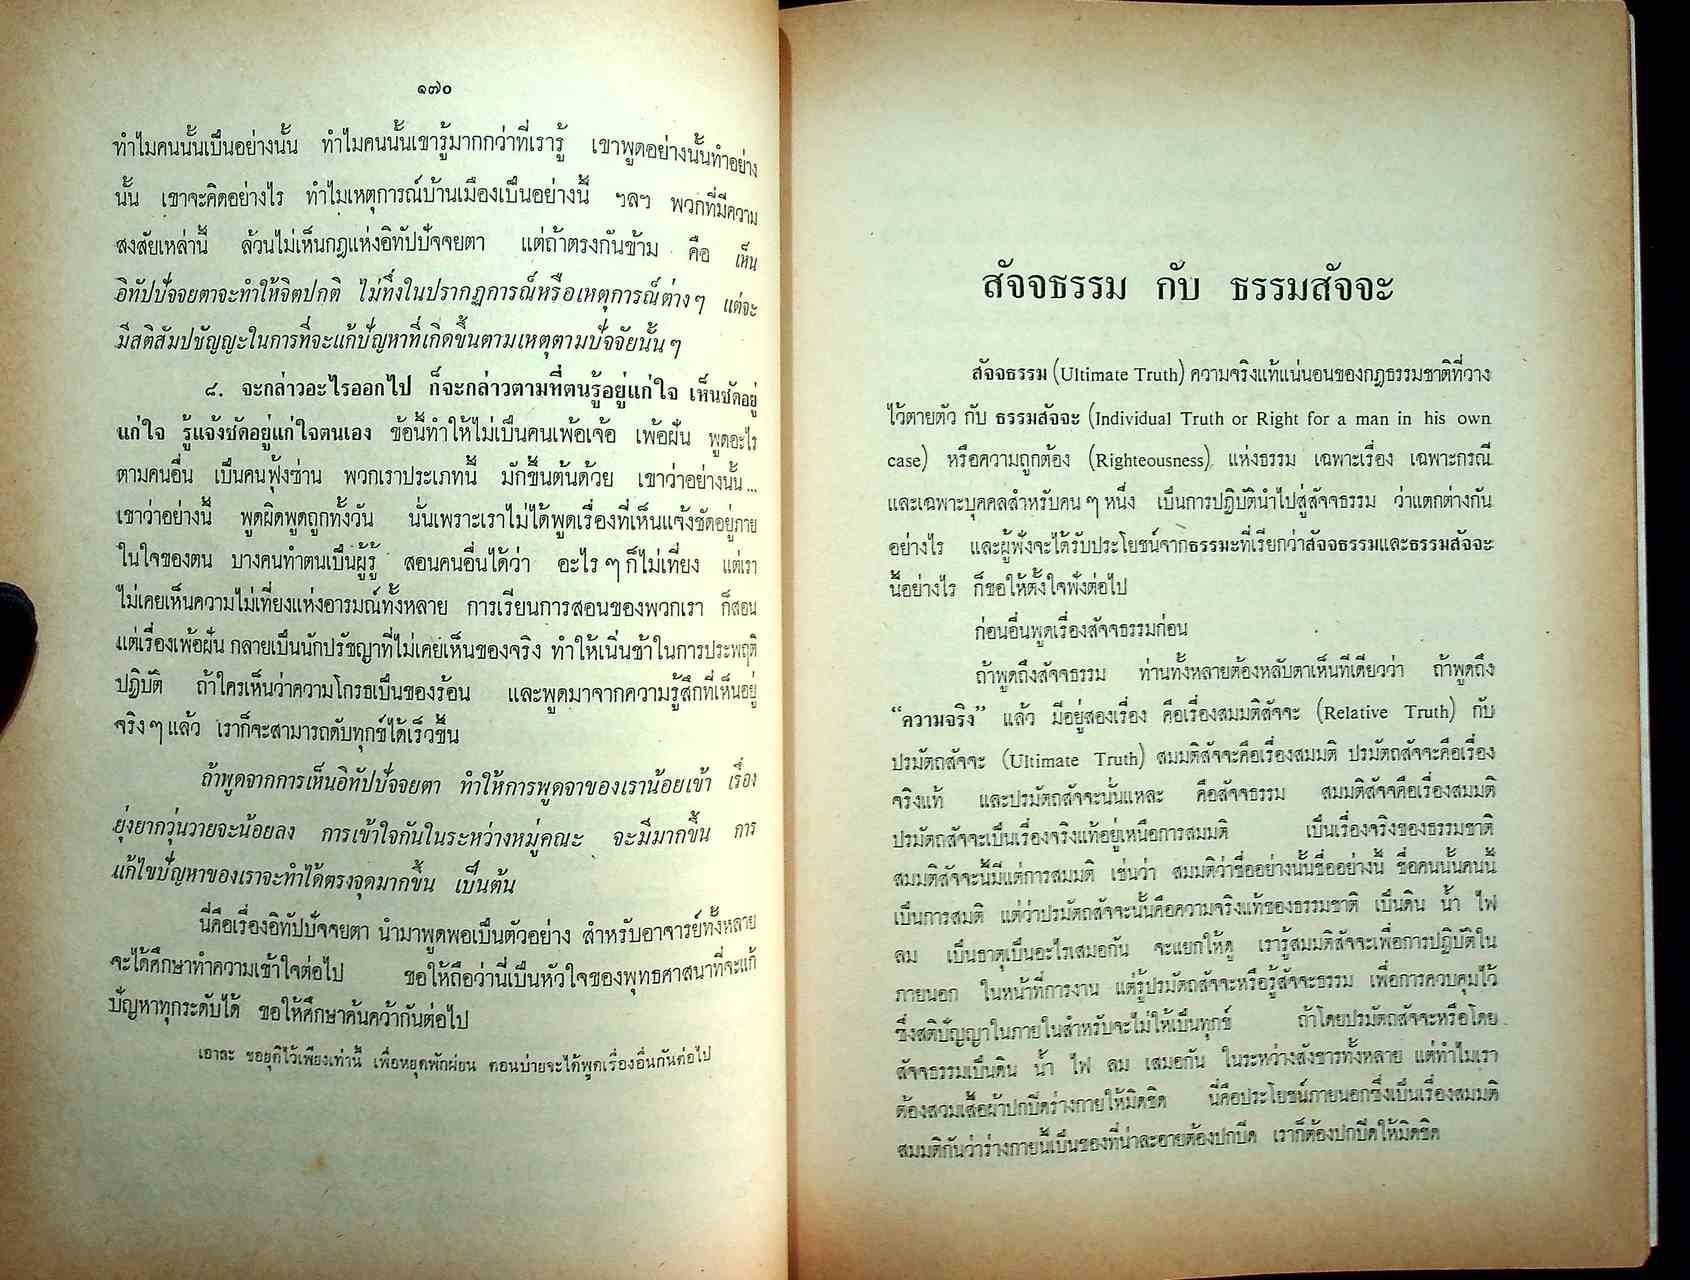 ๑๗๐
ทำไมคนนั้นเป็นอย่างนั้น ทำไมคนนั้นเขารู้มากกว่าที่เรารู้ เขาพูดอย่างนั้นทำอย่าง
นั้น เขาจะคิดอย่างไร ทำไมเหตุการณ์บ้านเมืองเป็นอย่างนี้ ฯลฯ พวกที่มีความ
สงสัยเหล่านี้ ล้วนไม่เห็นกฎแห่งอิทัปปัจจยตา แต่ถ้าตรงกันข้าม คือ เห็น
อิทัปปัจจยตาจะทำให้จิตปกติ ไม่ทึ่งในปรากฏการณ์หรือเหตุการณ์ต่างๆ แต่จะ
มีสติสัมปชัญญะในการที่จะแก้ปัญหาที่เกิดขึ้นตามเหตุตามปัจจัยนั้นๆ
๘. จะกล่าวอะไรออกไป ก็จะกล่าวตามที่ตนรู้อยู่แก่ใจ เห็นชัดอยู่
แก่ใจ รู้แจ้งชัดอยู่แก่ใจตนเอง ข้อนี้ทำให้ไม่เป็นคนเพ้อเจ้อ เพ้อฝัน พูดอะไร
ตามคนอื่น เป็นคนฟุ้งซ่าน พวกเราประเภทนี้ มักขึ้นต้นด้วย เขาว่าอย่างนั้น...
เขาว่าอย่างนี้ พูดผิดพูดถูกทั้งวัน นั่นเพราะเราไม่ได้พูดเรื่องที่เห็นแจ้งชัดอยู่ภาย
ในใจของตน บางคนทำตนเป็นผู้รู้ สอนคนอื่นได้ว่า อะไรๆก็ไม่เที่ยง แต่เรา
ไม่เคยเห็นความไม่เที่ยงแห่งอารมณ์ทั้งหลาย การเรียนการสอนของพวกเรา ก็สอน
แต่เรื่องเพ้อฝัน กลายเป็นนักปรัชญาที่ไม่เคยเห็นของจริง ทำให้เนิ่นช้าในการประพฤติ
ปฏิบัติ ถ้าใครเห็นว่าความโกรธเป็นของร้อน และพูดมาจากความรู้สึกที่เห็นอยู่
จริงๆแล้ว เราก็จะสามารถดับทุกข์ได้เร็วขึ้น
ถ้าพูดจากการเห็นอิทัปปัจจยตา ทำให้การพูดจาของเราน้อยเข้า เรื่อง
ยุ่งยากวุ่นวายจะน้อยลง การเข้าใจกันในระหว่างหมู่คณะ จะมีมากขึ้น การ
แก้ไขปัญหาของเราจะทำได้ตรงจุดมากขึ้น เป็นต้น
นี่คือเรื่องอิทัปปัจจยตา นำมาพูดพอเป็นตัวอย่าง สำหรับอาจารย์ทั้งหลาย
จะได้ศึกษาทำความเข้าใจต่อไป ขอให้ถือว่านี่เป็นหัวใจของพุทธศาสนาที่จะแก้
ปัญหาทุกระดับได้ ขอให้ศึกษาค้นคว้ากันต่อไป
เอาละ ขอยุติไว้เพียงเท่านี้ เพื่อหยุดพักผ่อน ตอนบ่ายจะได้พูดเรื่องอื่นกันต่อไป
สัจจธรรม กับ ธรรมสัจจะ
สัจจธรรม (Ultimate Truth) ความจริงแท้แน่นอนของกฎธรรมชาติที่วาง
ไว้ตายตัว กับ ธรรมสัจจะ (Individual Truth or Right for a man in his own
case) หรือความถูกต้อง (Righteousness) แห่งธรรม เฉพาะเรื่อง เฉพาะกรณี
และเฉพาะบุคคลสำหรับคนๆหนึ่ง เป็นการปฏิบัตินำไปสู่สัจจธรรม ว่าแตกต่างกัน
อย่างไร และผู้ฟังจะได้รับประโยชน์จากธรรมะที่เรียกว่าสัจจธรรมและธรรมสัจจะ
นี้อย่างไร ก็ขอให้ตั้งใจฟังต่อไป
ก่อนอื่นพูดเรื่องสัจจธรรมก่อน
ถ้าพูดถึงสัจจธรรม ท่านทั้งหลายต้องหลับตาเห็นทีเดียวว่า ถ้าพูดถึง
“ความจริง” แล้ว มีอยู่สองเรื่อง คือเรื่องสมมติสัจจะ (Relative Truth) กับ
ปรมัตถสัจจะ (Ultimate Truth) สมมติสัจจะคือเรื่องสมมติ ปรมัตถสัจจะคือเรื่อง
จริงแท้ และปรมัตถสัจจะนั่นแหละ คือสัจจธรรม สมมติสัจจคือเรื่องสมมติ
ปรมัตถสัจจะเป็นเรื่องจริงแท้อยู่เหนือการสมมติ เป็นเรื่องจริงของธรรมชาติ
สมมติสัจจะนี้มีแต่การสมมติ เช่นว่า สมมติว่าชื่ออย่างนั้นชื่ออย่างนี้ ชื่อคนนั้นคนนี้
เป็นการสมติ แต่ว่าปรมัตถสัจจะนั้นคือความจริงแท้ของธรรมชาติ เป็นดิน น้ำ ไฟ
ลม เป็นธาตุเป็นอะไรเสมอกัน จะแยกให้ดู เรารู้สมมติสัจจะเพื่อการปฏิบัติใน
ภายนอก ในหน้าที่การงาน แต่รู้ปรมัตถสัจจะหรือรู้สัจจะธรรม เพื่อการควบคุมไว้
ซึ่งสติปัญญาในภายในสำหรับจะไม่ให้เป็นทุกข์ ถ้าโดยปรมัตถสัจจะหรือโดย
สัจจธรรมเป็นดิน น้ำ ไฟ ลม เสมอกัน ในระหว่างสังขารทั้งหลาย แต่ทำไมเรา
ต้องสวมเสื้อผ้าปกปิดร่างกายให้มิดชิด นี่คือประโยชน์ภายนอกซึ่งเป็นเรื่องสมมติ
สมมติกันว่าร่างกายนี้เป็นของที่น่าละอายต้องปกปิด เราก็ต้องปกปิดให้มิดชิด